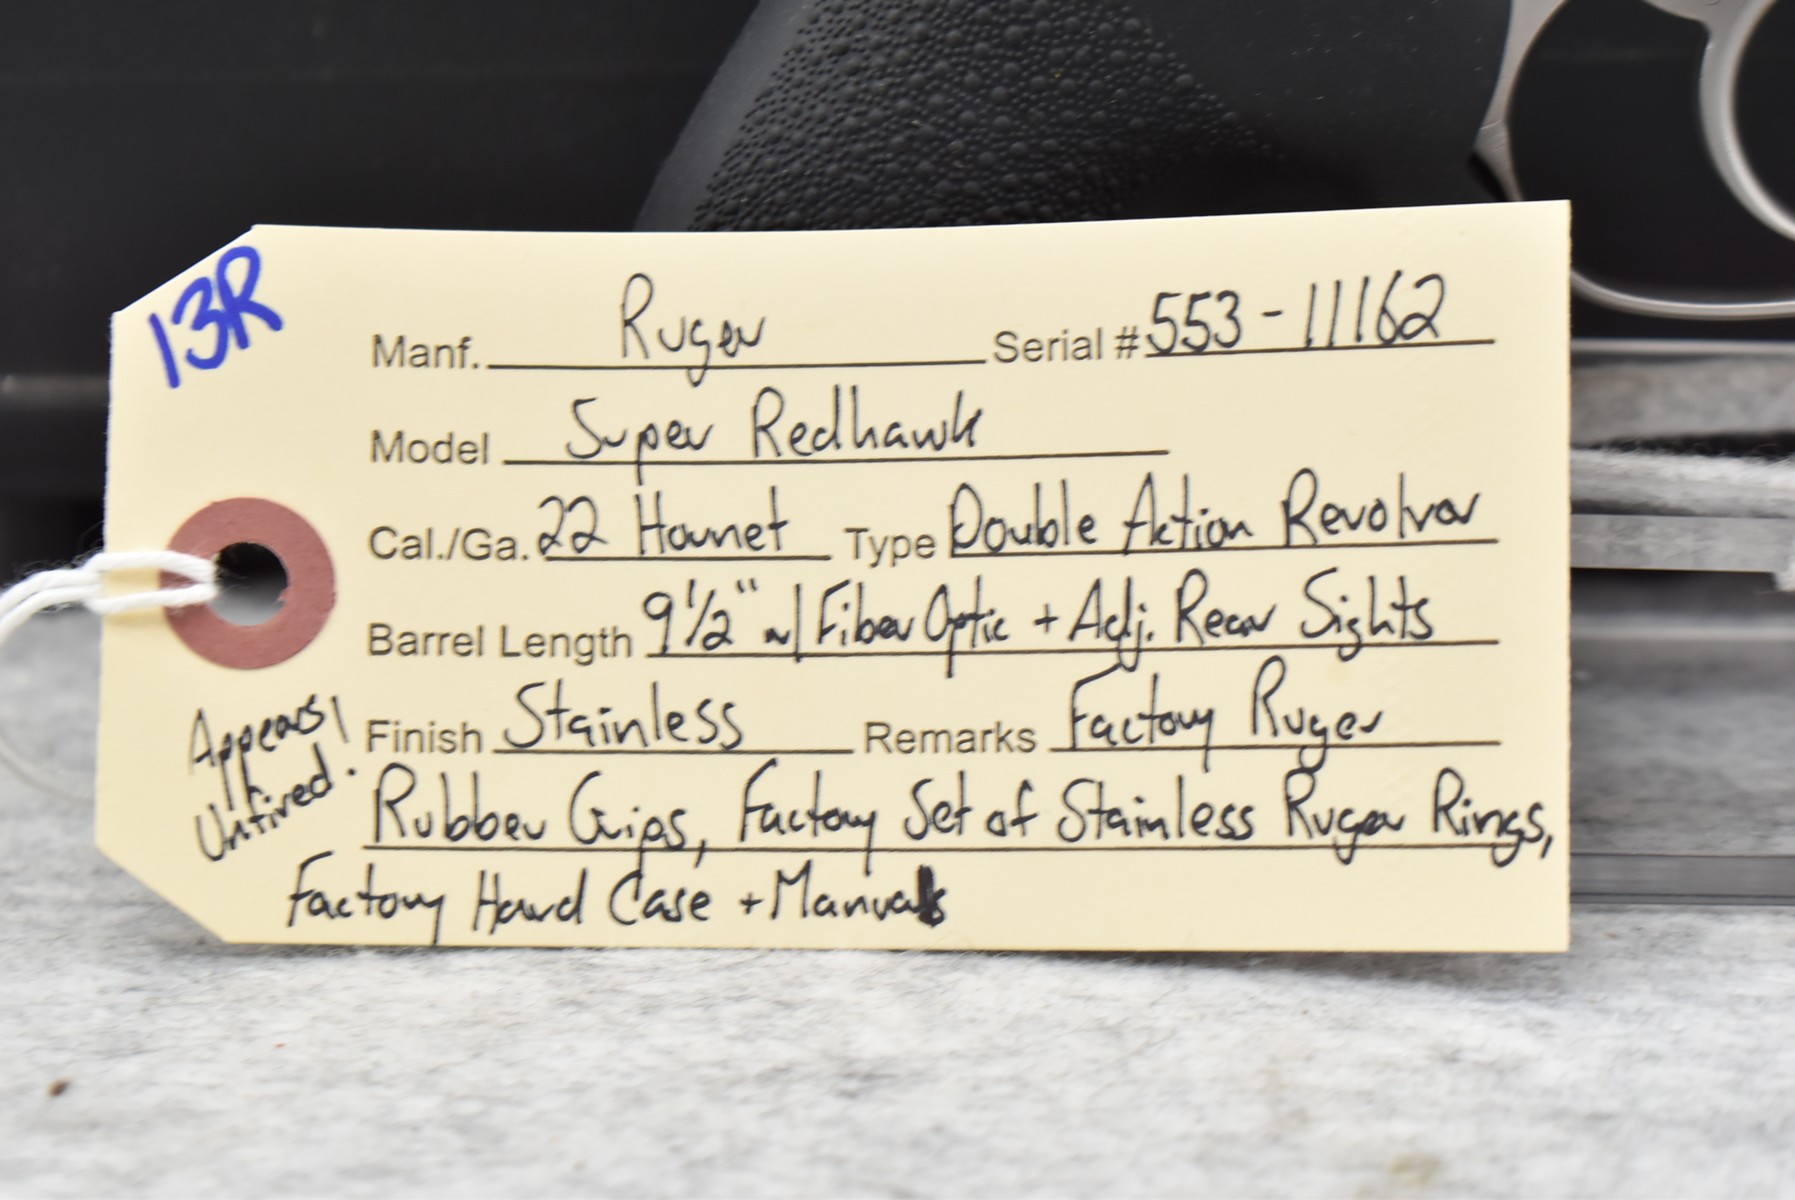 13R
Manf. Ruger Serial # 553-11162
Model Super Redhawk
Cal./Ga. 22 Hornet Type Double Action Revolver
Barrel Length 9 1/2" w/ Fiber Optic + Adj. Rear Sights
Finish Stainless Remarks Factory Ruger
Rubber Grips, Factory Set of Stainless Ruger Rings,
Factory Hard Case + Manuals
Appears
Unfired!